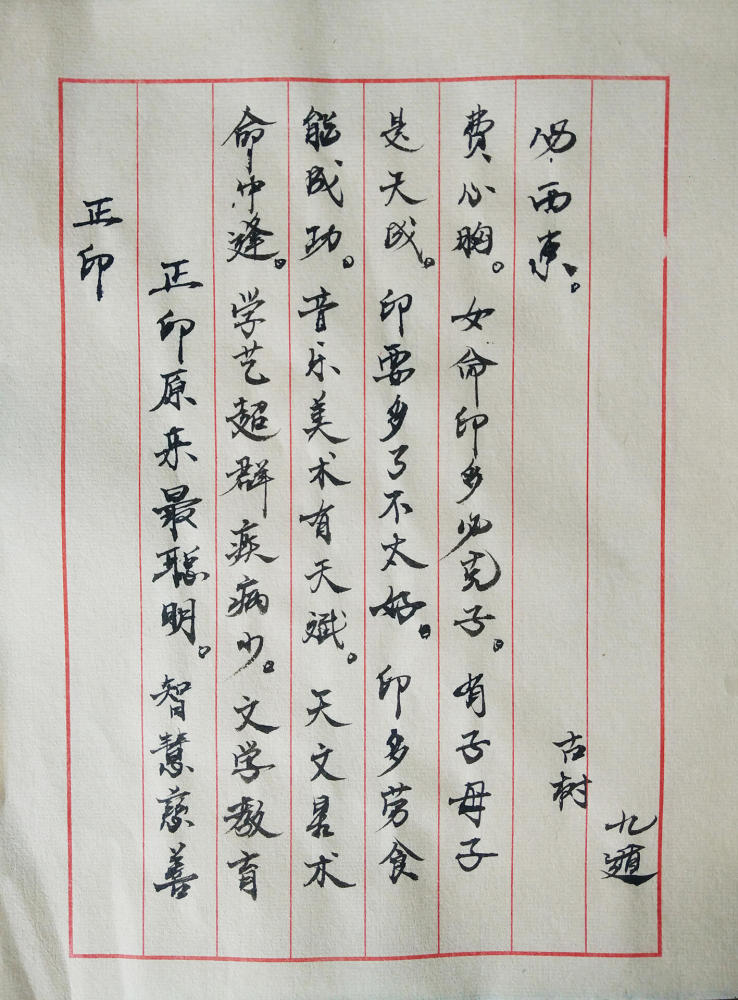 正印
正印原来最聪明。智慧慈善
命中逢。学艺超群疾病少。文学教育
能成功。音乐美术有天斌。天文星术
是天成。印要多了不太好。印多劳食
費心胸。女命印多必克子。有子母子
必西东。
古树
九道